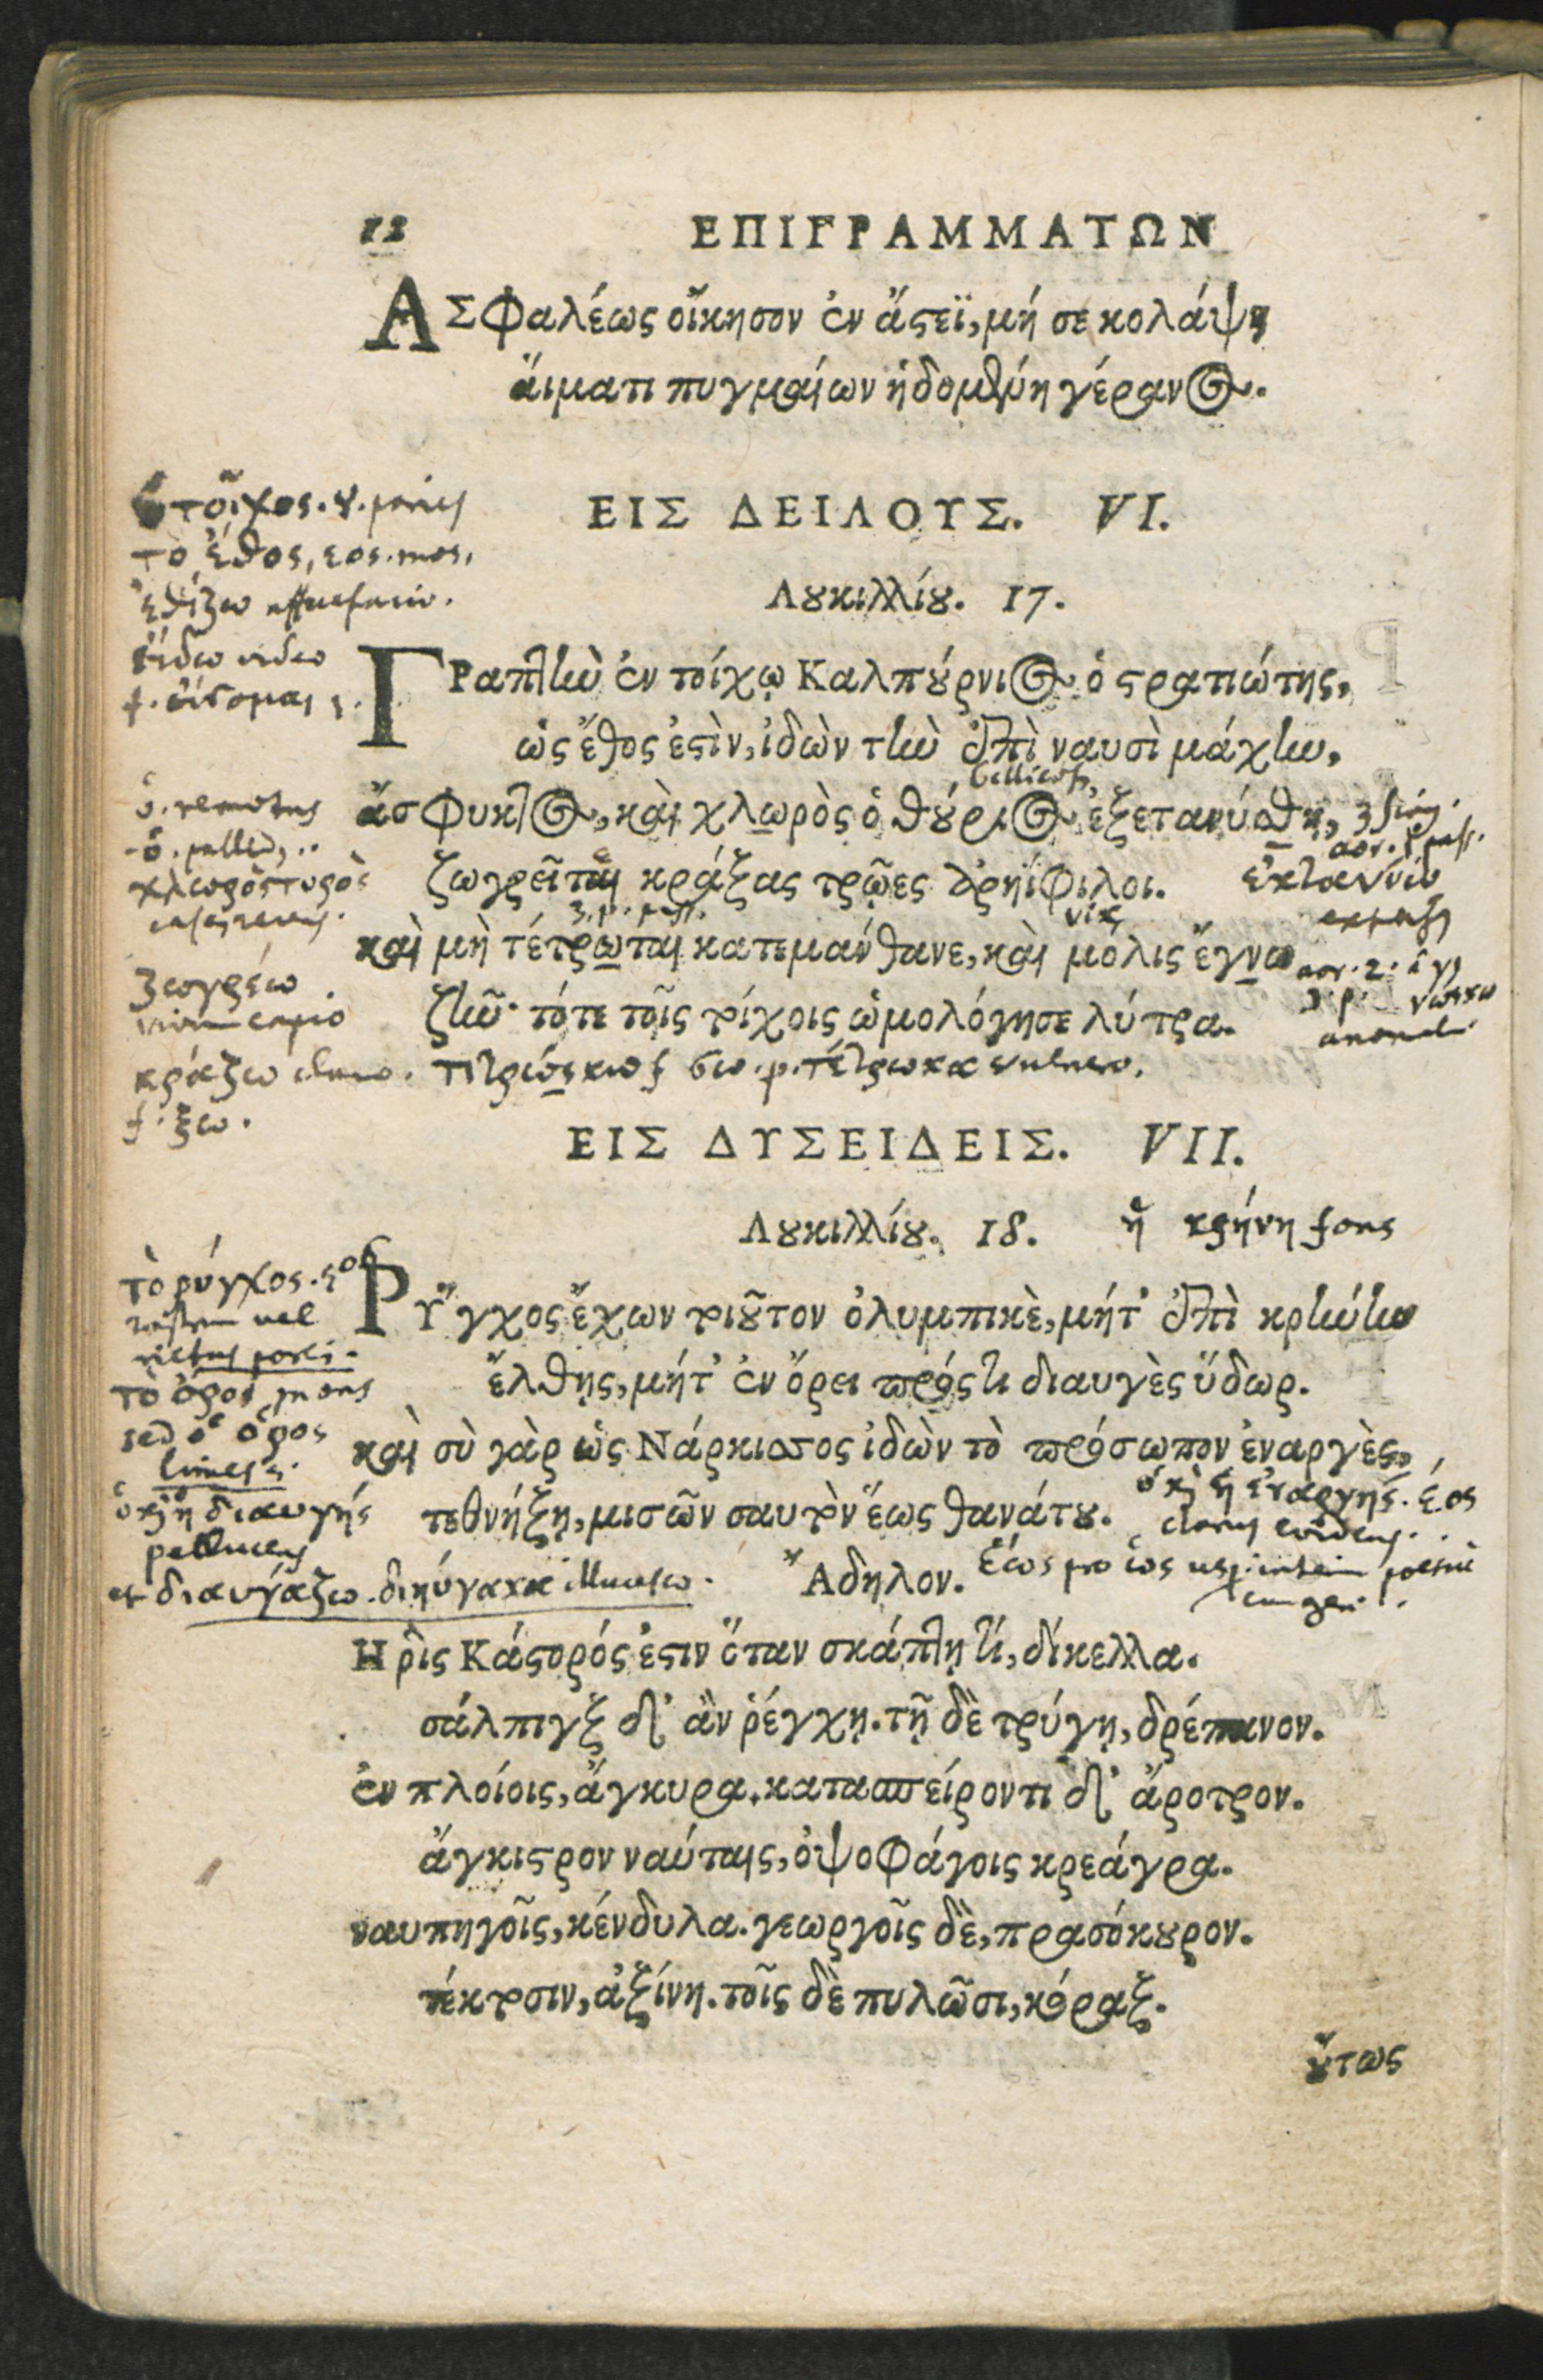 12 ΕΠΙΓΡΑΜΜΑΤΩΝ
ΑΣφαλέως οἴκησον ἐν ἄστεϊ, μή σε κολάψῃ
ἅιματι πυγμαίων ἡδομένη γέρανος.
ΕΙΣ ΔΕΙΛΟΥΣ. VI.
Λουκιλλίου. 17.
ΓΡαπτὴν ἐν τοίχῳ Καλπούρνιος ὁ στρατιώτης,
ὡς ἔθος ἐστὶν, ἰδὼν τὴν ἐπὶ ναυσὶ μάχην,
ἄσφυκτος, καὶ χλωρὸς ὁ θούριος ἐξετανύσθη,
ζωγρεῖται κράξας τρῶες ἀρηίφιλοι.
καὶ μὴ τέτρωται κατεμάνθανε, καὶ μόλις ἔγνω
ζῆν· τότε τοῖς τοίχοις ὡμολόγησε λύτρα.
ΕΙΣ ΔΥΣΕΙΔΕΙΣ. VII.
Λουκιλλίου. 18.
ΡΥ῎γχος ἔχων τοιοῦτον ὀλυμπικὲ, μήτ' ἐπὶ κρήνην
ἔλθῃς, μήτ' ἐν ὄρει πρός τι διαυγὲς ὕδωρ.
καὶ σὺ γὰρ ὡς Νάρκισσος ἰδὼν τὸ πρόσωπον ἐναργὲς,
τεθνήξῃ, μισῶν σαυτὸν ἕως θανάτου.
῎Αδηλον.
Η ῥὶς Κάστορός ἐστιν ὅταν σκάπτῃ τί, δίκελλα.
σάλπιγξ δ' ἂν ῥέγχῃ. τῇ δὲ τρύγῃ, δρέπανον.
ἐν πλοίοις, ἄγκυρα. κατασπείροντι δ' ἄροτρον.
ἄγκιστρον ναύταις, ὀψοφάγοις κρεάγρα.
ναυπηγοῖς, κένδυλα. γεωργοῖς δὲ, πρασόκουρον.
τέκτοσιν, ἀξίνη. τοῖς δὲ πυλῶσι, κόραξ.
οὕτως
τοῖχος.
τὸ ἔθος, εος. mos.
ἐθίζω
εἴδω video
f. εἴσομαι
ζωγρέω
κράζω
f. ξω.
τιτρώσκω f σω. p. τέτρωκα vulnero.
ἡ κρήνη fons
τὸ ῥύγχος. εος
τὸ ὄρος mons
sed ὁ ὅρος
limes
ὁ καὶ ἡ διαυγής
διαυγάζω. διηύγακα illucesco.
ὁ καὶ ἡ ἐναργής. έος